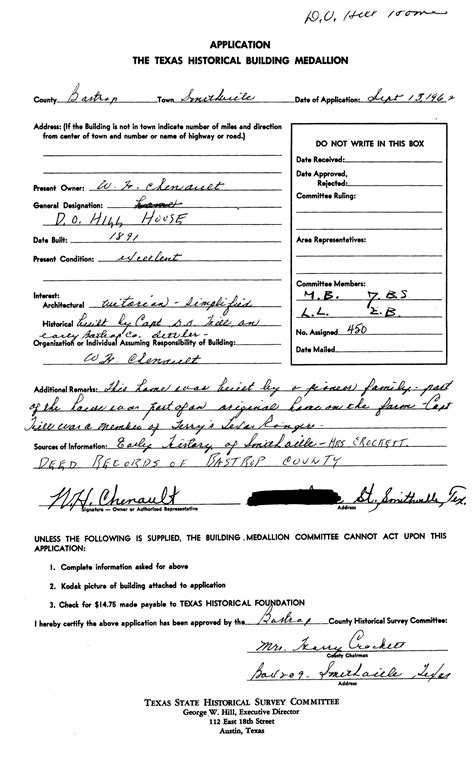 D.O. Hill Home
APPLICATION
THE TEXAS HISTORICAL BUILDING MEDALLION
County Bastrop Town Smithville Date of Application: Sept 13, 1962
Address: (If the Building is not in town indicate number of miles and direction
from center of town and number or name of highway or road.)
Present Owner: W. H. Chenault
General Designation:
D.O. Hill House
Date Built: 1891
Present Condition: excellent
Interest:
Architectural Victorian - simplified
Historical built by Capt D.O. Hill, an
early Bastrop Co. settler-
Organization or Individual Assuming Responsibility of Building:
W H Chenault
DO NOT WRITE IN THIS BOX
Date Received:
Date Approved,
Rejected:
Committee Ruling:
Area Representatives:
Committee Members:
M.B. J.B.S
L.L. E.B.
No. Assigned 450
Date Mailed
Additional Remarks: This home was built by a pioneer family - part
of the house was part of an original home on the farm Capt
Hill was a member of Terry's Texas Rangers.
Sources of Information: Early History of Smithville - MRS CROCKETT.
DEED RECORDS OF BASTROP COUNTY
W.H. Chenault St, Smithville, Tex.
Signature — Owner or Authorized Representative Address
UNLESS THE FOLLOWING IS SUPPLIED, THE BUILDING MEDALLION COMMITTEE CANNOT ACT UPON THIS
APPLICATION:
1. Complete information asked for above
2. Kodak picture of building attached to application
3. Check for $14.75 made payable to TEXAS HISTORICAL FOUNDATION
I hereby certify the above application has been approved by the Bastrop County Historical Survey Committee:
Mrs. Harry Crockett
County Chairman
Box 209. Smithville, Texas
Address
TEXAS STATE HISTORICAL SURVEY COMMITTEE
George W. Hill, Executive Director
112 East 18th Street
Austin, Texas